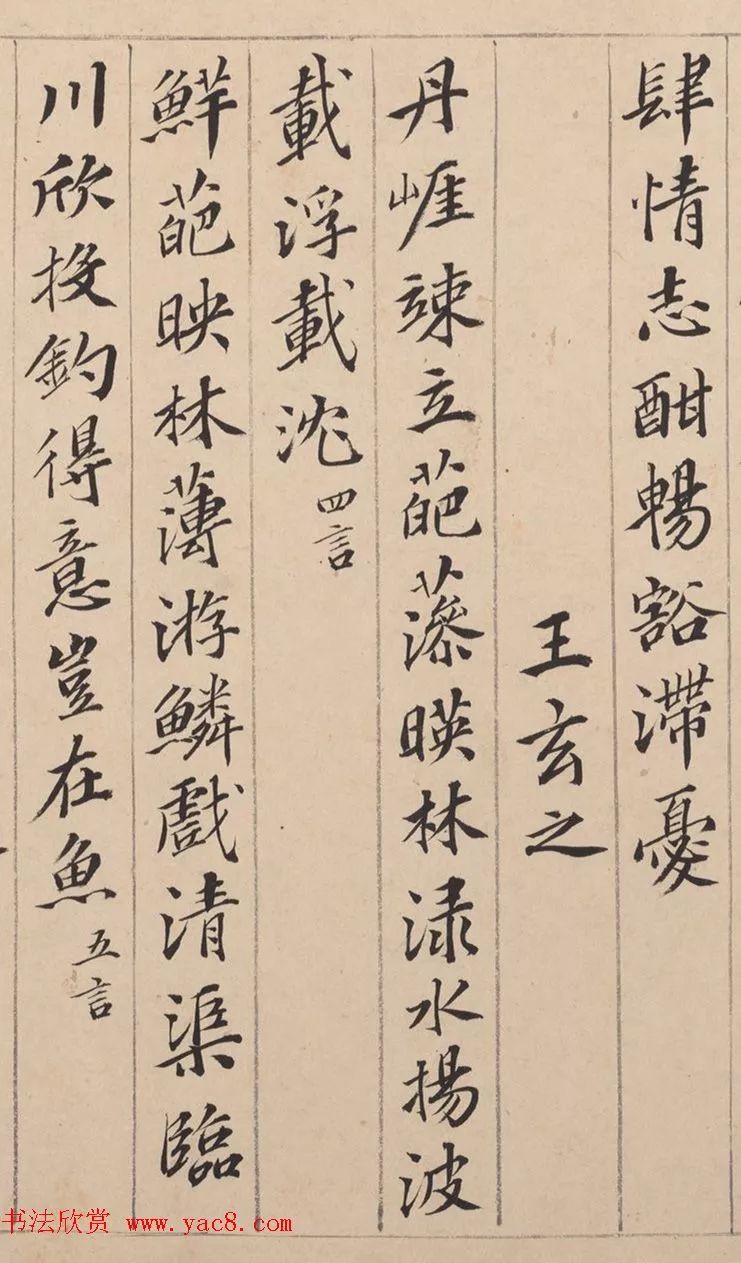 肆情志酣暢豁滯憂
王玄之
丹崕竦立葩藻暎林渌水揚波
載浮載沈四言
鮮葩映林薄游鱗戲清渠臨
川欣投釣得意豈在魚五言
书法欣赏 www.yac8.com